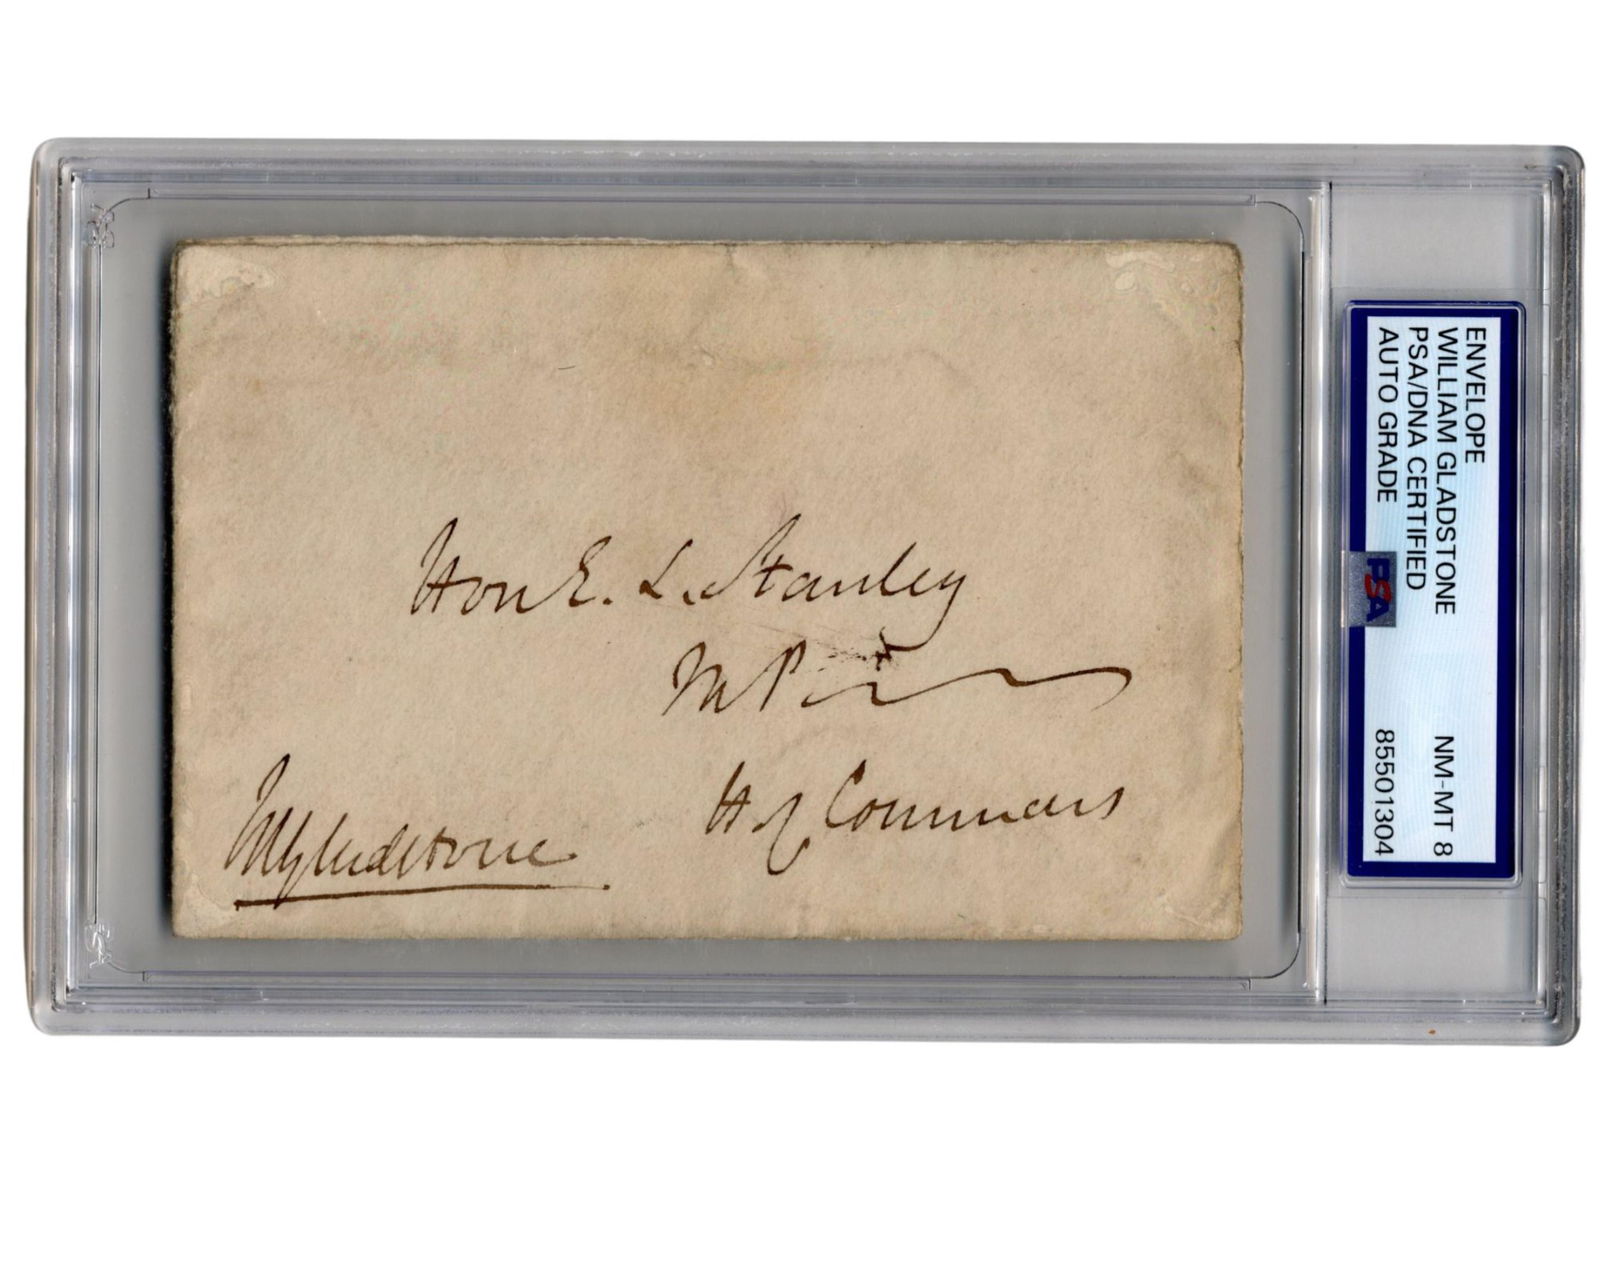 Hon E. L. Stanley
MP
H of Commons
WGladstone
ENVELOPE
WILLIAM GLADSTONE NM-MT 8
PSA/DNA CERTIFIED
AUTO GRADE 85501304
PSA